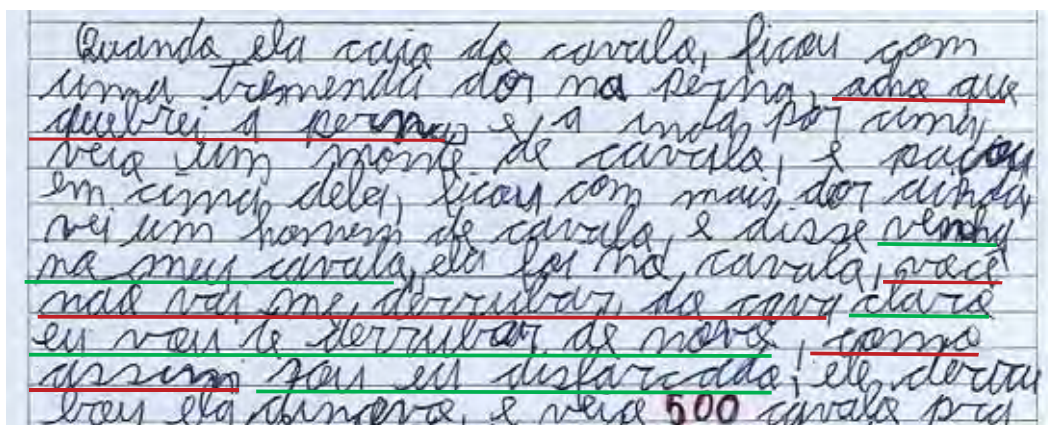 Quando ela caiu do cavalo, ficou com
uma tremenda dor na perna, acho que
quebrei a perna, e a inda por cima,
veio um monte de cavalo, e paçou
em cima dela, ficou com mais dor ainda,
vei um homem de cavalo, e disse venha
no meu cavalo, ela foi no cavalo, você
não vai me derrubar do cava claro
eu vou te derrubar de novo, como
assim sou eu disfarcado, ele derru
bou ela dinovo, e veio 500 cavalo pra